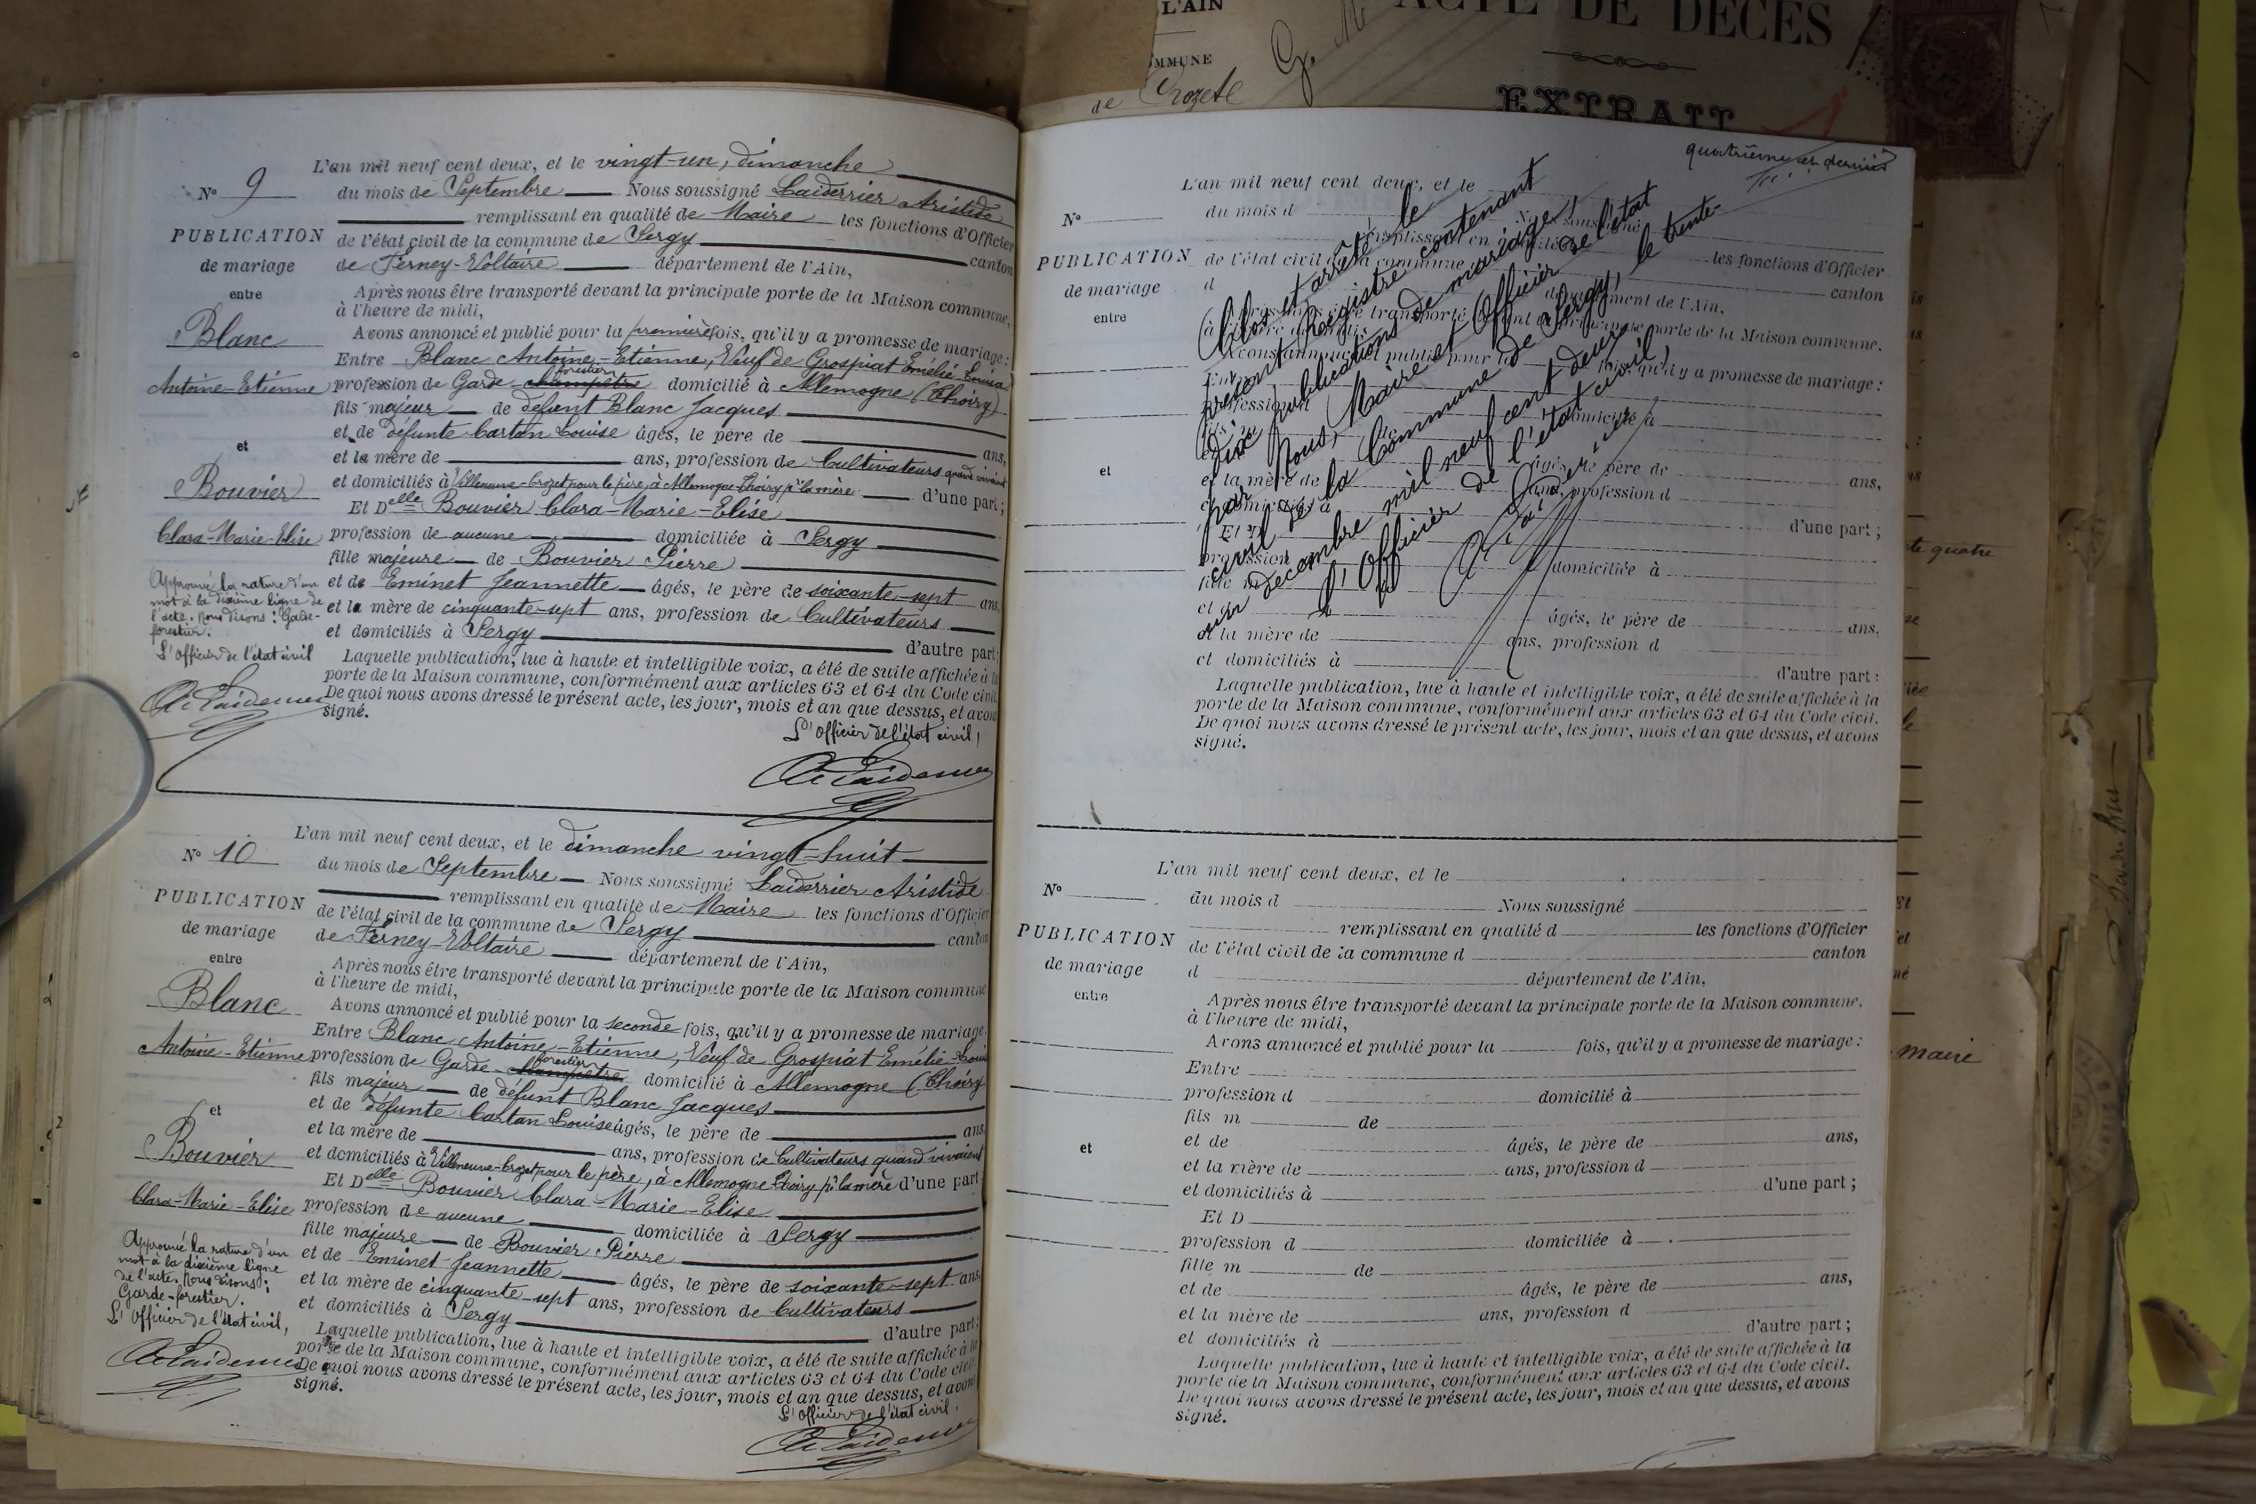 L'AIN
ACTE DE DÉCÈS
de Crozet
EXTRAIT
L'an mil neuf cent deux, et le vingt-un, dimanche
N° 9
du mois de Septembre Nous soussigné Laiderrier Aristide
remplissant en qualité de Maire les fonctions d'Officier
PUBLICATION
de mariage
entre
Blanc
Antoine-Etienne
et
Bouvier
Clara-Marie-Elise
de l'état civil de la commune de Sergy canton
de Ferney-Voltaire département de l'Ain,
Après nous être transporté devant la principale porte de la Maison commune,
à l'heure de midi,
Avons annoncé et publié pour la première fois, qu'il y a promesse de mariage :
Entre Blanc Antoine-Etienne, Veuf de Grospiat Emélie-Louisa
forestier
profession de Garde-champêtre domicilié à Allemogne (Thoiry)
fils majeur de défunt Blanc Jacques
et de défunte Carton Louise âgés, le père de ans,
et la mère de ans, profession de Cultivateurs quand vivaient
et domiciliés à Villeneuve-Crozet pour le père, à Allemogne Thoiry pr la mère d'une part ;
Et Delle Bouvier Clara-Marie-Elise
profession de aucune domiciliée à Sergy
fille majeure de Bouvier Pierre
et de Eminet Jeannette âgés, le père de soixante-sept ans,
et la mère de cinquante-sept ans, profession de Cultivateurs
et domiciliés à Sergy d'autre part
Laquelle publication, lue à haute et intelligible voix, a été de suite affichée à la
porte de la Maison commune, conformément aux articles 63 et 64 du Code civil.
De quoi nous avons dressé le présent acte, les jour, mois et an que dessus, et avons
signé.
Approuvé la rature d'un
mot à la dixième ligne de
l'acte. Nous disons : Garde-
forestier.
L'Officier de l'état civil
L'Officier de l'état civil,
L'an mil neuf cent deux, et le dimanche vingt-huit
N° 10
du mois de Septembre Nous soussigné Laiderrier Aristide
remplissant en qualité de Maire les fonctions d'Officier
PUBLICATION
de mariage
entre
Blanc
Antoine-Etienne
et
Bouvier
Clara-Marie-Elise
de l'état civil de la commune de Sergy canton
de Ferney-Voltaire département de l'Ain,
Après nous être transporté devant la principale porte de la Maison commune
à l'heure de midi,
Avons annoncé et publié pour la seconde fois, qu'il y a promesse de mariage
Entre Blanc Antoine-Etienne, Veuf de Grospiat Emélie-Louisa
forestier
profession de Garde-champêtre domicilié à Allemogne (Thoiry
fils majeur de défunt Blanc Jacques
et de défunte Carton Louise âgés, le père de ans
et la mère de ans, profession de Cultivateurs quand vivaient
et domiciliés à Villeneuve-Crozet pour le père, à Allemogne Thoiry pr la mère d'une part
Et Delle Bouvier Clara-Marie-Elise
profession de aucune domiciliée à Sergy
fille majeure de Bouvier Pierre
et de Eminet Jeannette âgés, le père de soixante-sept ans
et la mère de cinquante-sept ans, profession de Cultivateurs
et domiciliés à Sergy d'autre part ;
Laquelle publication, lue à haute et intelligible voix, a été de suite affichée à la
porte de la Maison commune, conformément aux articles 63 et 64 du Code civil
De quoi nous avons dressé le présent acte, les jour, mois et an que dessus, et avons
signé.
Approuvé la rature d'un
mot à la dixième ligne
de l'acte. Nous disons :
Garde-forestier.
L'Officier de l'état civil,
L'Officier de l'état civil.
quatrième et dernier
Clos et arrêté le
présent Registre contenant
dix publications de mariage,
par Nous, Maire et Officier de l'état
civil de la Commune de Sergy, le trente-
un décembre mil neuf cent deux
L'Officier de l'état civil,
L'an mil neuf cent deux, et le
N°
du mois d
PUBLICATION
de mariage
entre
et
les fonctions d'Officier
canton
qu'il y a promesse de mariage :
ans,
d'une part ;
domiciliée à
âgés, le père de ans,
et la mère de ans, profession d
et domiciliés à d'autre part :
Laquelle publication, lue à haute et intelligible voix, a été de suite affichée à la
porte de la Maison commune, conformément aux articles 63 et 64 du Code civil.
De quoi nous avons dressé le présent acte, les jour, mois et an que dessus, et avons
signé.
L'an mil neuf cent deux, et le
N°
du mois d Nous soussigné
remplissant en qualité d les fonctions d'Officier
PUBLICATION
de mariage
entre
et
de l'état civil de la commune d canton
d département de l'Ain,
Après nous être transporté devant la principale porte de la Maison commune.
à l'heure de midi,
Avons annoncé et publié pour la fois, qu'il y a promesse de mariage :
Entre
profession d domicilié à
fils m de
et de âgés, le père de ans,
et la mère de ans, profession d
et domiciliés à d'une part ;
Et D
profession d domiciliée à
fille m de
et de âgés, le père de ans,
et la mère de ans, profession d
et domiciliés à d'autre part ;
Laquelle publication, lue à haute et intelligible voix, a été de suite affichée à la
porte de la Maison commune, conformément aux articles 63 et 64 du Code civil.
De quoi nous avons dressé le présent acte, les jour, mois et an que dessus, et avons
signé.
quatre
maire